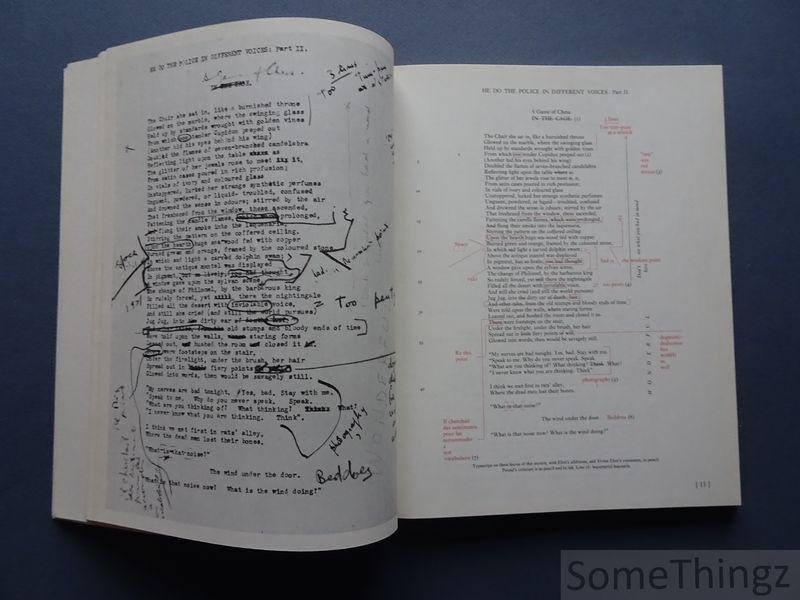 HE DO THE POLICE IN DIFFERENT VOICES: Part II.
A Game of Chess.
The Chair she sat in, like a burnished throne
Glowed on the marble, where the swinging glass
Held up by standards wrought with golden vines
From which tender Cupidon peeped out
(Another hid his eyes behind his wing)
Doubled the flames of seven-branched candelabra
Reflecting light upon the table as
The glitter of her jewels rose to meet it,
From satin cases poured in rich profusion;
In vials of ivory and coloured glass
Unstoppered, lurked her strange synthetic perfumes
Unguent, powdered, or liquid- troubled, confused
And drowned the sense in odours; stirred by the air
That freshened from the window, these ascended,
Fattening the candle flames, prolonged,
flung their smoke into the laquearia,
Stirring the pattern on the coffered ceiling.
Upon the hearth huge sea-wood fed with copper
Burned green and orange, framed by the coloured stone,
In which sad light a carved dolphin swam;
Above the antique mantel was displayed
In pigment, thought,
A window gave upon the sylvan scene,
The change of Philomel, by the barbarous king
So rudely forced, yet there the nightingale
Filled all the desert with inviolable voice,
And still she cried (and still the world pursues)
Jug Jug, into the dirty ear
old stumps and bloody ends of time
Were told upon the walls, staring forms
hushed the room closed it
were footsteps on the stair,
Under the firelight, under the brush, her hair
Spread out in fiery points
Glowed into words, then would be savagely still.
"My nerves are bad tonight. Yes, bad. Stay with me.
"Speak to me. Why do you never speak. Speak.
"What are you thinking of? What thinking? What?
"I never know what you are thinking. Think".
I think we met first in rats' alley,
Where the dead men lost their bones.
"What is that noise?"
The wind under the door.
"What is that noise now? What is the wind doing?"
3 lines
Too
Too
photography
Beddoes
HE DO THE POLICE IN DIFFERENT VOICES: Part II.
A Game of Chess
IN THE CAGE. (1)
3 lines
Too tum-pum
at a stretch
The Chair she sat in, like a burnished throne
Glowed on the marble, where the swinging glass
Held up by standards wrought with golden vines
From which one tender Cupidon peeped out (2)
(Another hid his eyes behind his wing)
Doubled the flames of seven-branched candelabra
Reflecting light upon the table where as
The glitter of her jewels rose to meet it,
From satin cases poured in rich profusion;
In vials of ivory and coloured glass
Unstoppered, lurked her strange synthetic perfumes
Unguent, powdered, or liquid—troubled, confused
And drowned the sense in odours; stirred by the air
That freshened from the window, these ascended,
Fattening the candle flames, which were prolonged,
And flung their smoke into the laquearia,
Stirring the pattern on the coffered ceiling.
Upon the hearth huge sea-wood fed with copper
Burned green and orange, framed by the coloured stone,
In which sad light a carved dolphin swam;
Above the antique mantel was displayed
In pigment, but so lively, you had thought
A window gave upon the sylvan scene,
The change of Philomel, by the barbarous king
So rudely forced, yet still there the nightingale
Filled all the desert with inviolable voice,
And still she cried (and still the world pursues)
Jug Jug, into the dirty ear of death; lust;
And other tales, from the old stumps and bloody ends of time
Were told upon the walls, where staring forms
Leaned out, and hushed the room and closed it in.
There were footsteps on the stair,
Under the firelight, under the brush, her hair
Spread out in little fiery points of will,
Glowed into words, then would be savagely still.
"My nerves are bad tonight. Yes, bad. Stay with me.
"Speak to me. Why do you never speak. Speak.
"What are you thinking of? What thinking? Think What?
"I never know what you are thinking. Think".
photography (4)
I think we met first in rats' alley,
Where the dead men lost their bones.
"What is that noise?"
The wind under the door. Beddoes (6)
"What is that noise now? What is the wind doing?"
"one"
wee
red
mouse (3)
Don't see what you had in mind
here
had is the weakest point
Space
vide
too poetry (4)
WONDERFUL
dogmatic
deduction
but
wobbly
as well
Re this
point
Il cherchait
des sentiments
pour les
accommoder
a
son
vocabulaire (7)
Typescript on three leaves of this section, with Eliot's additions, and Vivien Eliot's comments, in pencil.
Pound's criticism is in pencil and in ink. Line 16: laquenaria laquearia.
[ 11 ]
SomeThingz